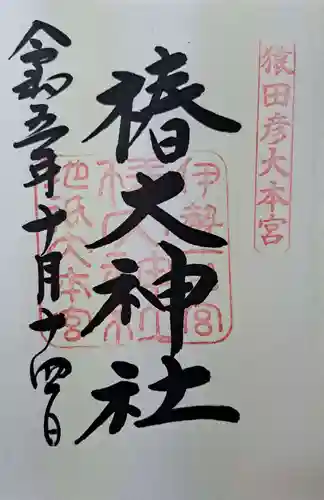 猿田彦大本宮
椿大神社
伊勢一宮
椿大神社
地祇大本宮
令和五年十月十四日